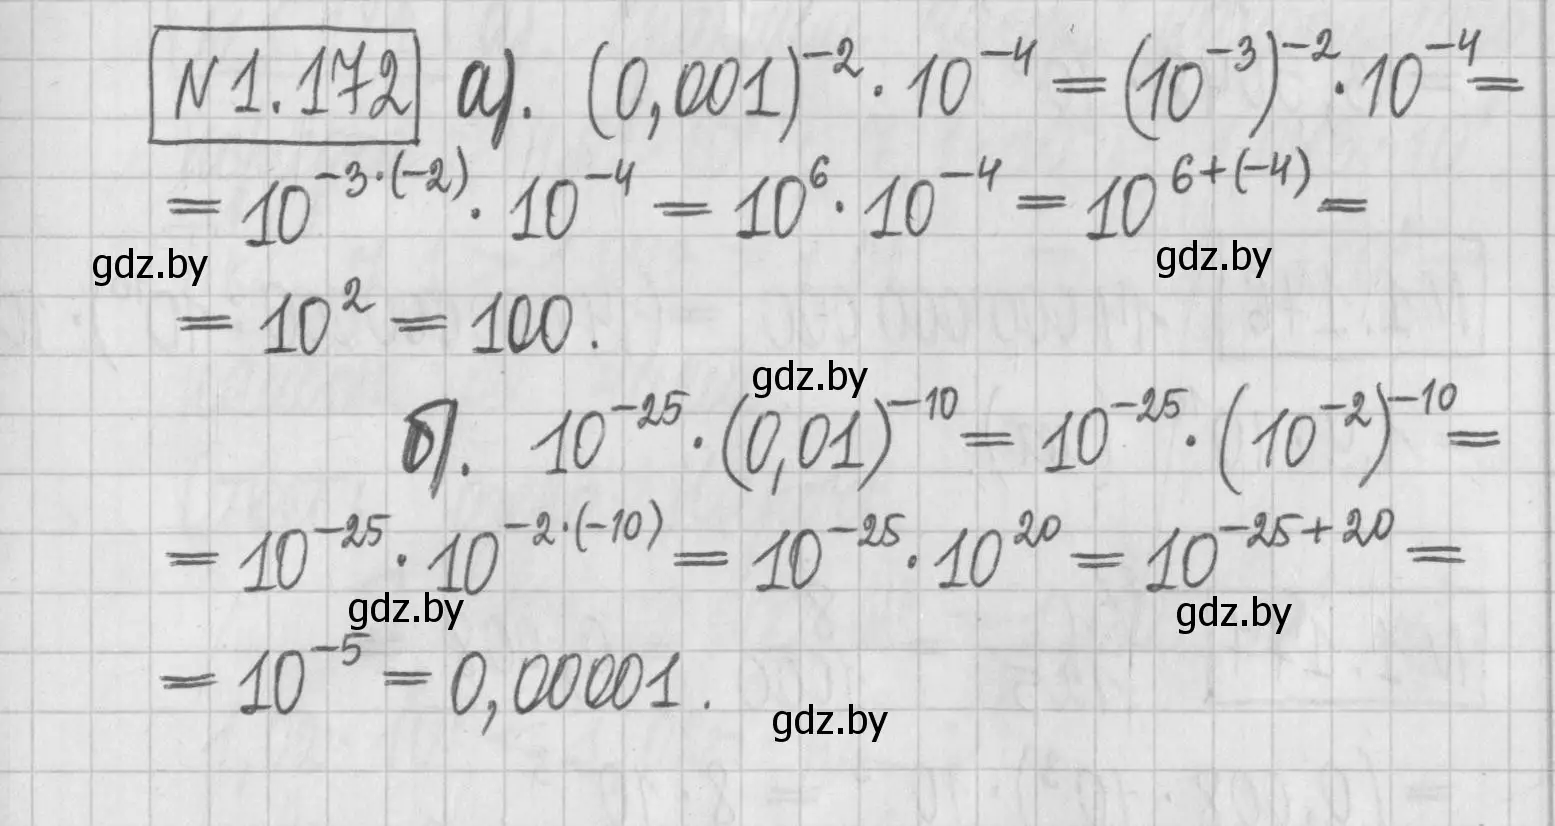 N 1.172 а). (0,001)^{-2} · 10^{-4} = (10^{-3})^{-2} · 10^{-4} =
= 10^{-3·(-2)} · 10^{-4} = 10^{6} · 10^{-4} = 10^{6+(-4)} =
gdz.by gdz.by
= 10^{2} = 100.
gdz.by
б). 10^{-25} · (0,01)^{-10} = 10^{-25} · (10^{-2})^{-10} =
= 10^{-25} · 10^{-2·(-10)} = 10^{-25} · 10^{20} = 10^{-25+20} =
gdz.by gdz.by
= 10^{-5} = 0,00001.
gdz.by